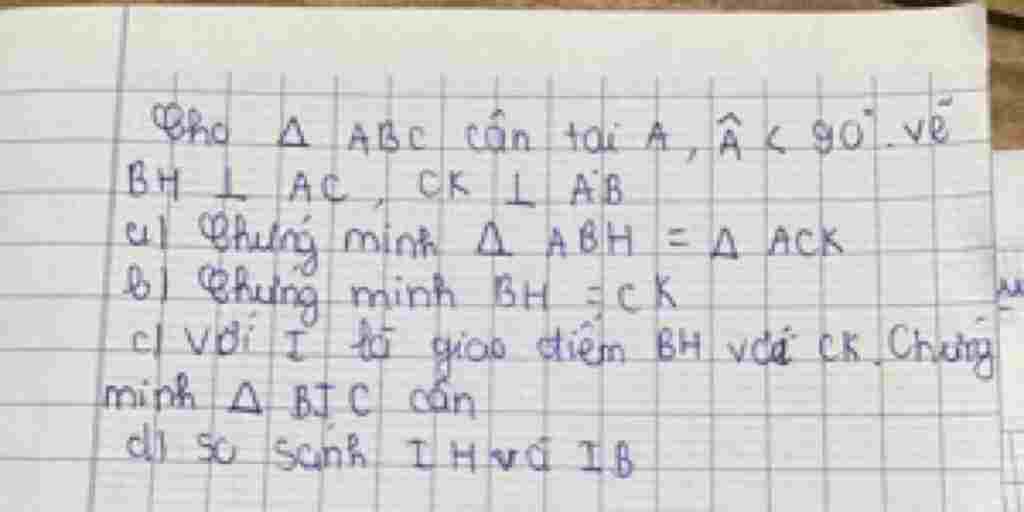 Cho Δ ABC cân tại A, Â < 90°. vẽ
BH ⊥ AC, CK ⊥ AB
a) Chứng minh Δ ABH = Δ ACK
b) Chứng minh BH = CK
c) Với I là giao điểm BH với CK. Chứng
minh Δ BIC cân
d) So sánh IH và IB